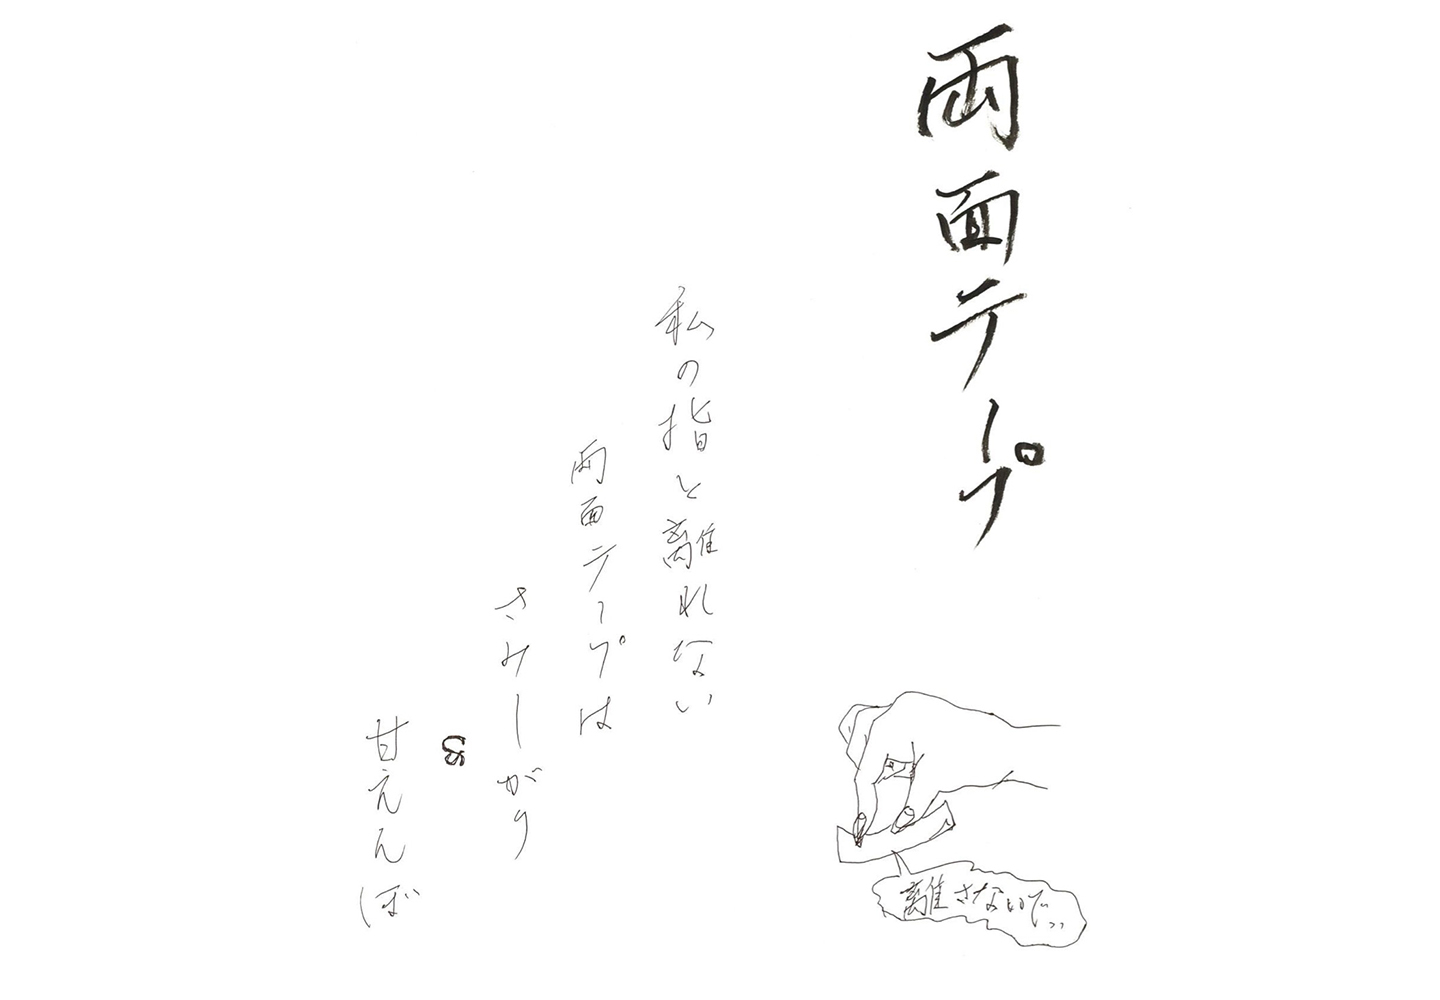 両面テープ
私の指と離れない
両面テープは
さみしがり
甘えんぼ
離さないで…